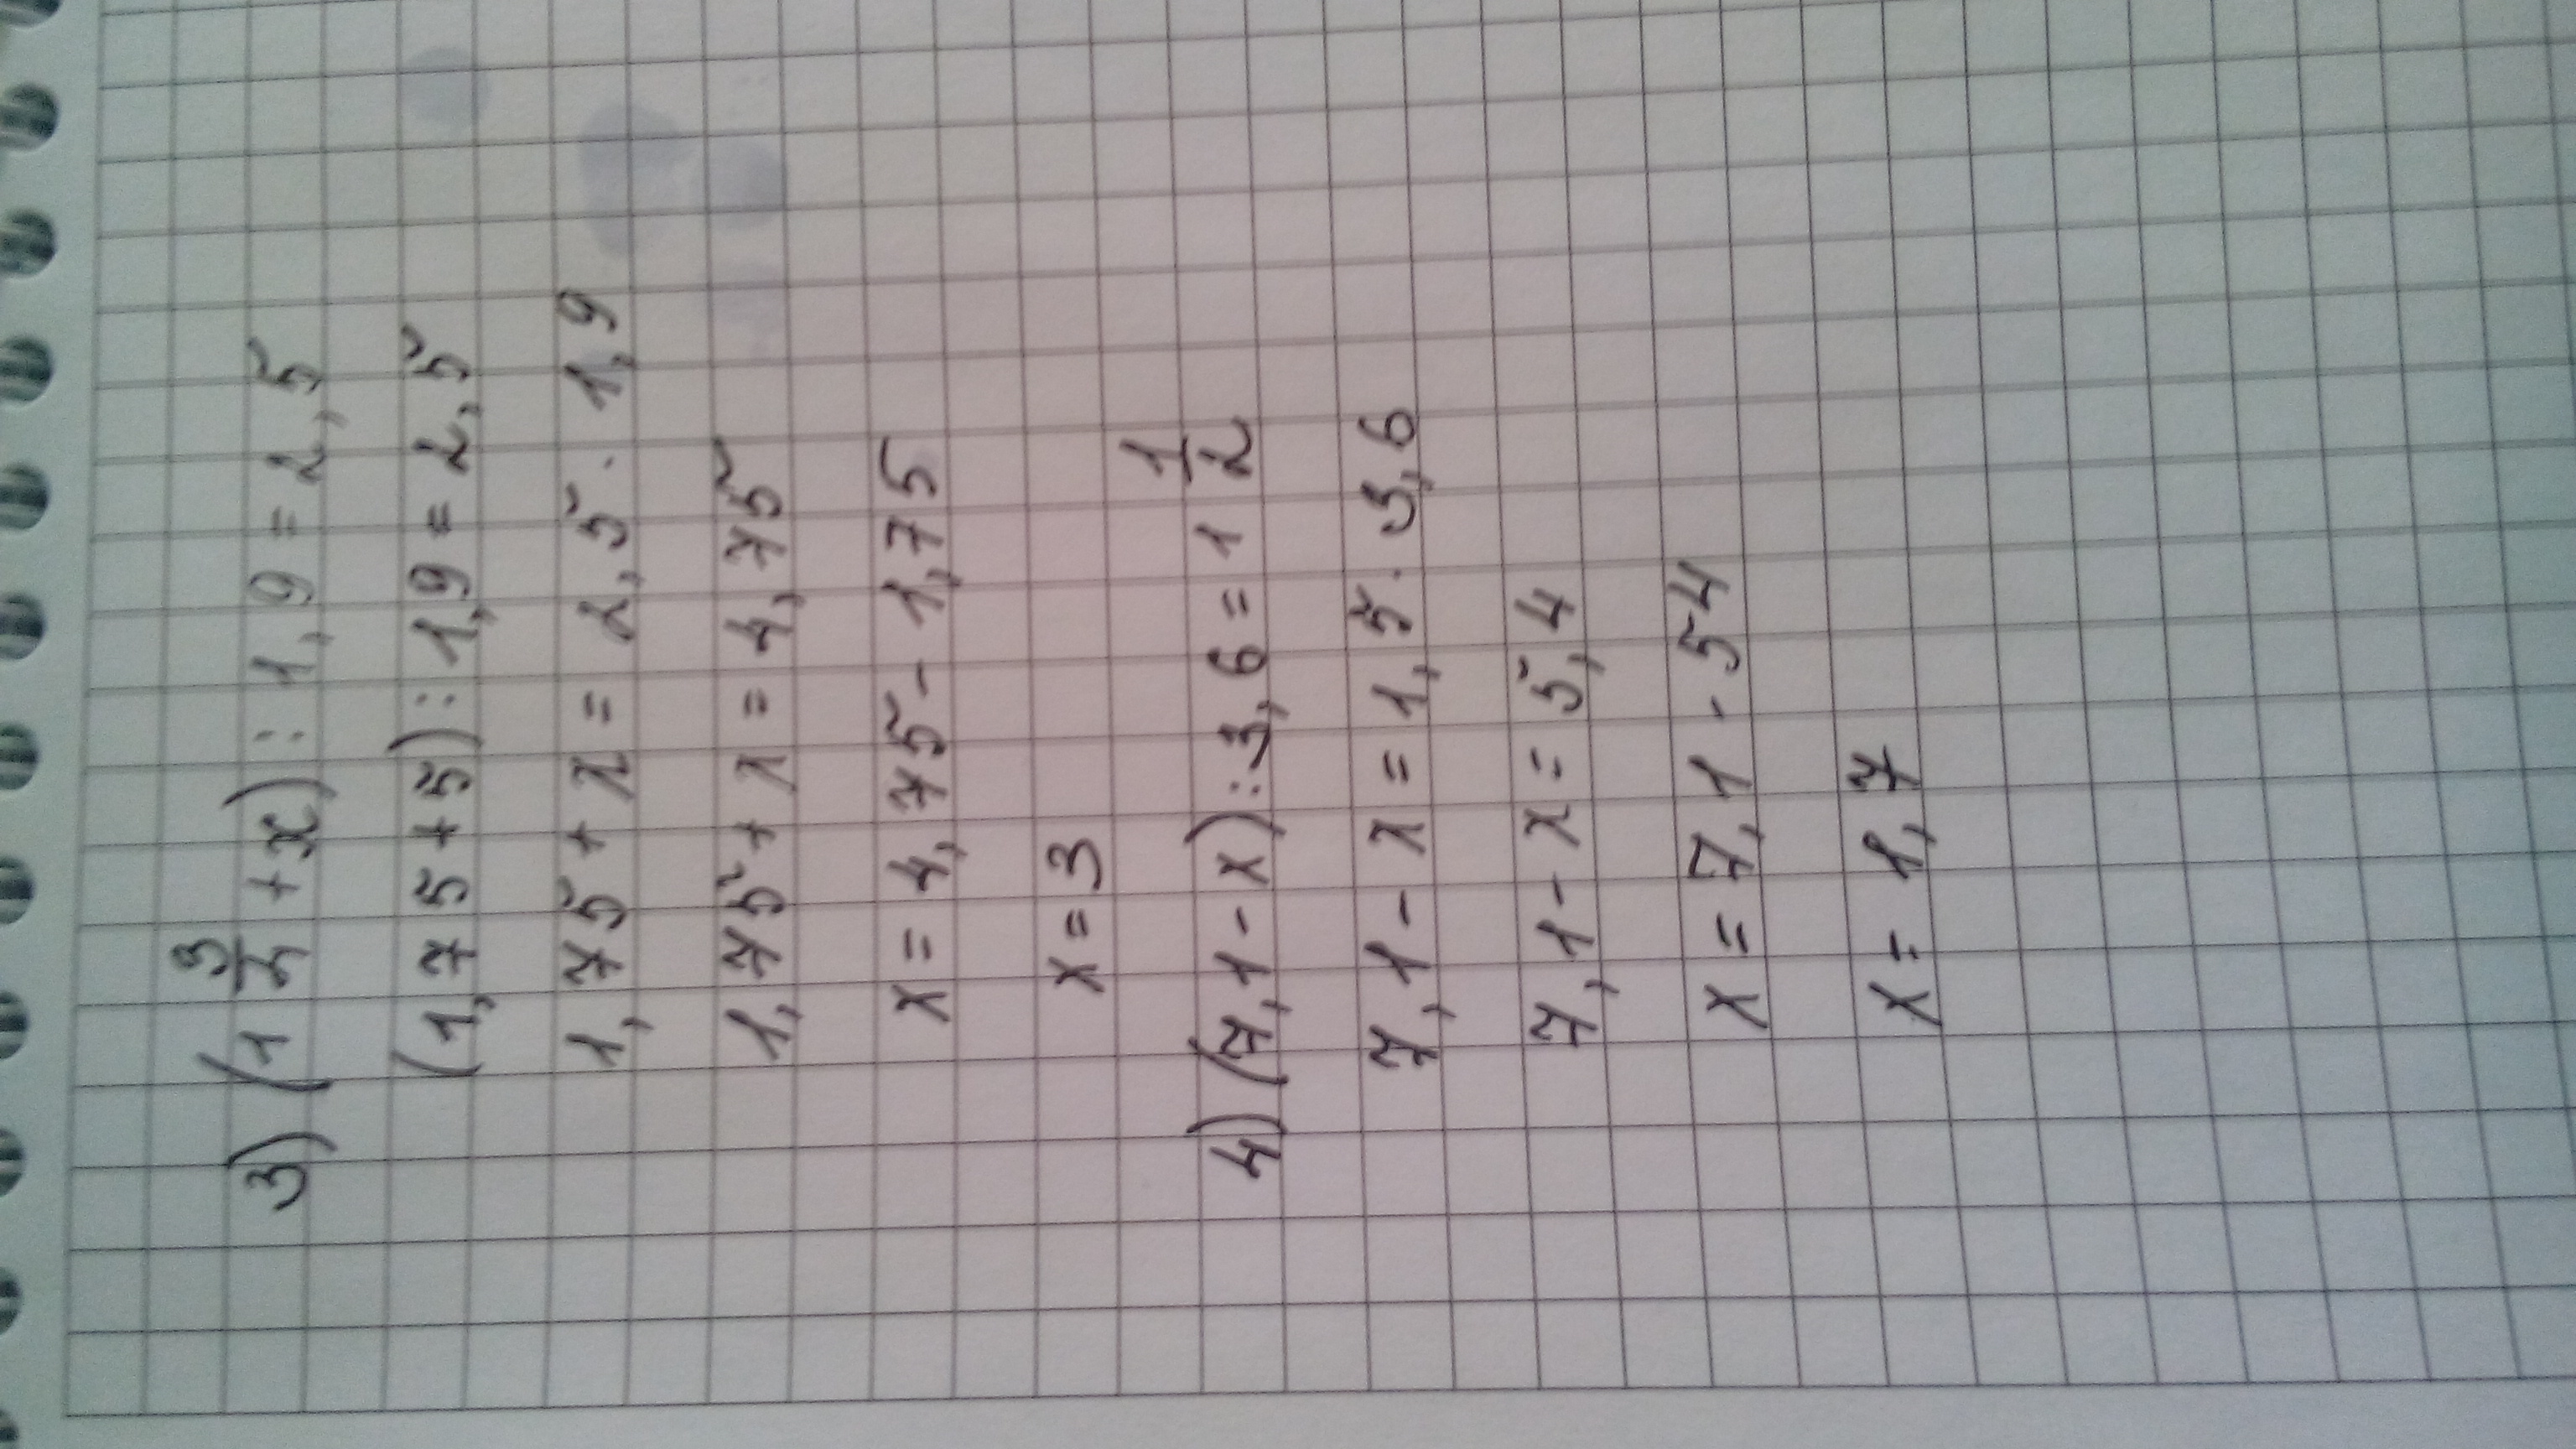 3) (1 3/4 + x) : 1,9 = 2,5
(1,75 + 5) : 1,9 = 2,5
1,75 + x = 2,5 · 1,9
1,75 + x = 4,75
x = 4,75 - 1,75
x = 3
4) (7,1 - x) : 3,6 = 1 1/2
7,1 - x = 1,5 · 3,6
7,1 - x = 5,4
x = 7,1 - 54
x = 1,7